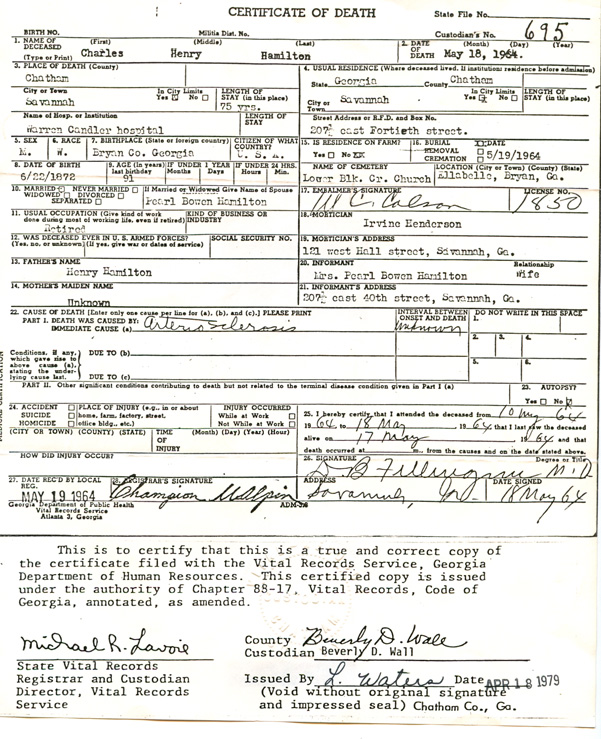 CERTIFICATE OF DEATH
State File No.
BIRTH NO. Militia Dist. No. Custodian's No. 695
1. NAME OF DECEASED (Type or Print) (First) Charles (Middle) Henry (Last) Hamilton
2. DATE OF DEATH (Month) (Day) (Year) May 18, 1964.
3. PLACE OF DEATH (County) Chatham
4. USUAL RESIDENCE (Where deceased lived. If institution: residence before admission)
State Georgia County Chatham
City or Town Savannah In City Limits Yes No LENGTH OF STAY (in this place) 75 yrs.
City or Town Savannah In City Limits Yes No LENGTH OF STAY (in this place)
Name of Hosp. or Institution Warren Candler hospital LENGTH OF STAY
Street Address or R.F.D. and Box No. east Fortieth street.
5. SEX M. 6. RACE W. 7. BIRTHPLACE (State or foreign country) Bryan Co. Georgia CITIZEN OF WHAT COUNTRY? U. S. A.
15. IS RESIDENCE ON FARM? Yes No 16. BURIAL REMOVAL CREMATION DATE 5/19/1964
8. DATE OF BIRTH 6/22/1872 9. AGE (in years) last birthday 91 IF UNDER 1 YEAR Months Days IF UNDER 24 HRS. Hours Min.
NAME OF CEMETERY Lower Blk. Cr. Church LOCATION (City or Town) (County) (State) Ellabelle, Bryan, Ga.
10. MARRIED NEVER MARRIED WIDOWED DIVORCED SEPARATED If Married or Widowed Give Name of Spouse Pearl Bowen Hamilton
17. EMBALMER'S SIGNATURE W C Colson LICENSE NO. 1850
11. USUAL OCCUPATION (Give kind of work done during most of working life, even if retired) Retired KIND OF BUSINESS OR INDUSTRY
18. MORTICIAN Irvine Henderson
12. WAS DECEASED EVER IN U.S. ARMED FORCES? (Yes, no. or unknown) (If yes, give war or dates of service) SOCIAL SECURITY NO.
19. MORTICIAN'S ADDRESS 121 west Hall street, Savannah, Ga.
13. FATHER'S NAME Henry Hamilton
20. INFORMANT Mrs. Pearl Bowen Hamilton Relationship Wife
14. MOTHER'S MAIDEN NAME Unknown
21. INFORMANT'S ADDRESS east 40th street, Savannah, Ga.
22. CAUSE OF DEATH [Enter only one cause per line for (a), (b), and (c).] PLEASE PRINT
PART I. DEATH WAS CAUSED BY:
IMMEDIATE CAUSE (a) Arteriosclerosis
INTERVAL BETWEEN ONSET AND DEATH Unknown
DO NOT WRITE IN THIS SPACE
1.
2. 3. 4.
5. 6.
Conditions, if any, which gave rise to above cause (a), stating the underlying cause last.
DUE TO (b)
DUE TO (c)
PART II. Other significant conditions contributing to death but not related to the terminal disease condition given in Part I (a)
23. AUTOPSY? Yes No
24. ACCIDENT SUICIDE HOMICIDE PLACE OF INJURY (e.g., in or about home, farm, factory, street, office bldg., etc.) INJURY OCCURRED While at Work Not While at Work
(CITY OR TOWN) (COUNTY) (STATE) TIME OF INJURY (Month) (Day) (Year) (Hour)
HOW DID INJURY OCCUR?
25. I hereby certify that I attended the deceased from 10 May 64
1964 to 18 May, 1964 that I last saw the deceased
alive on 17 May, 1964 and that
death occurred at m., from the causes and on the date stated above.
26. SIGNATURE Degree or Title M.D.
27. DATE REC'D BY LOCAL REG. MAY 19 1964 28. REGISTRAR'S SIGNATURE Champion
ADDRESS Savannah, Ga. DATE SIGNED 18 May 64
Georgia Department of Public Health
Vital Records Service
Atlanta 3, Georgia
This is to certify that this is a true and correct copy of
the certificate filed with the Vital Records Service, Georgia
Department of Human Resources. This certified copy is issued
under the authority of Chapter 88-17, Vital Records, Code of
Georgia, annotated, as amended.
Michael R. Lavoie
State Vital Records
Registrar and Custodian
Director, Vital Records
Service
County Beverly D. Wall
Custodian Beverly D. Wall
Issued By L. Waters Date APR 18 1979
(Void without original signature
and impressed seal) Chatham Co., Ga.